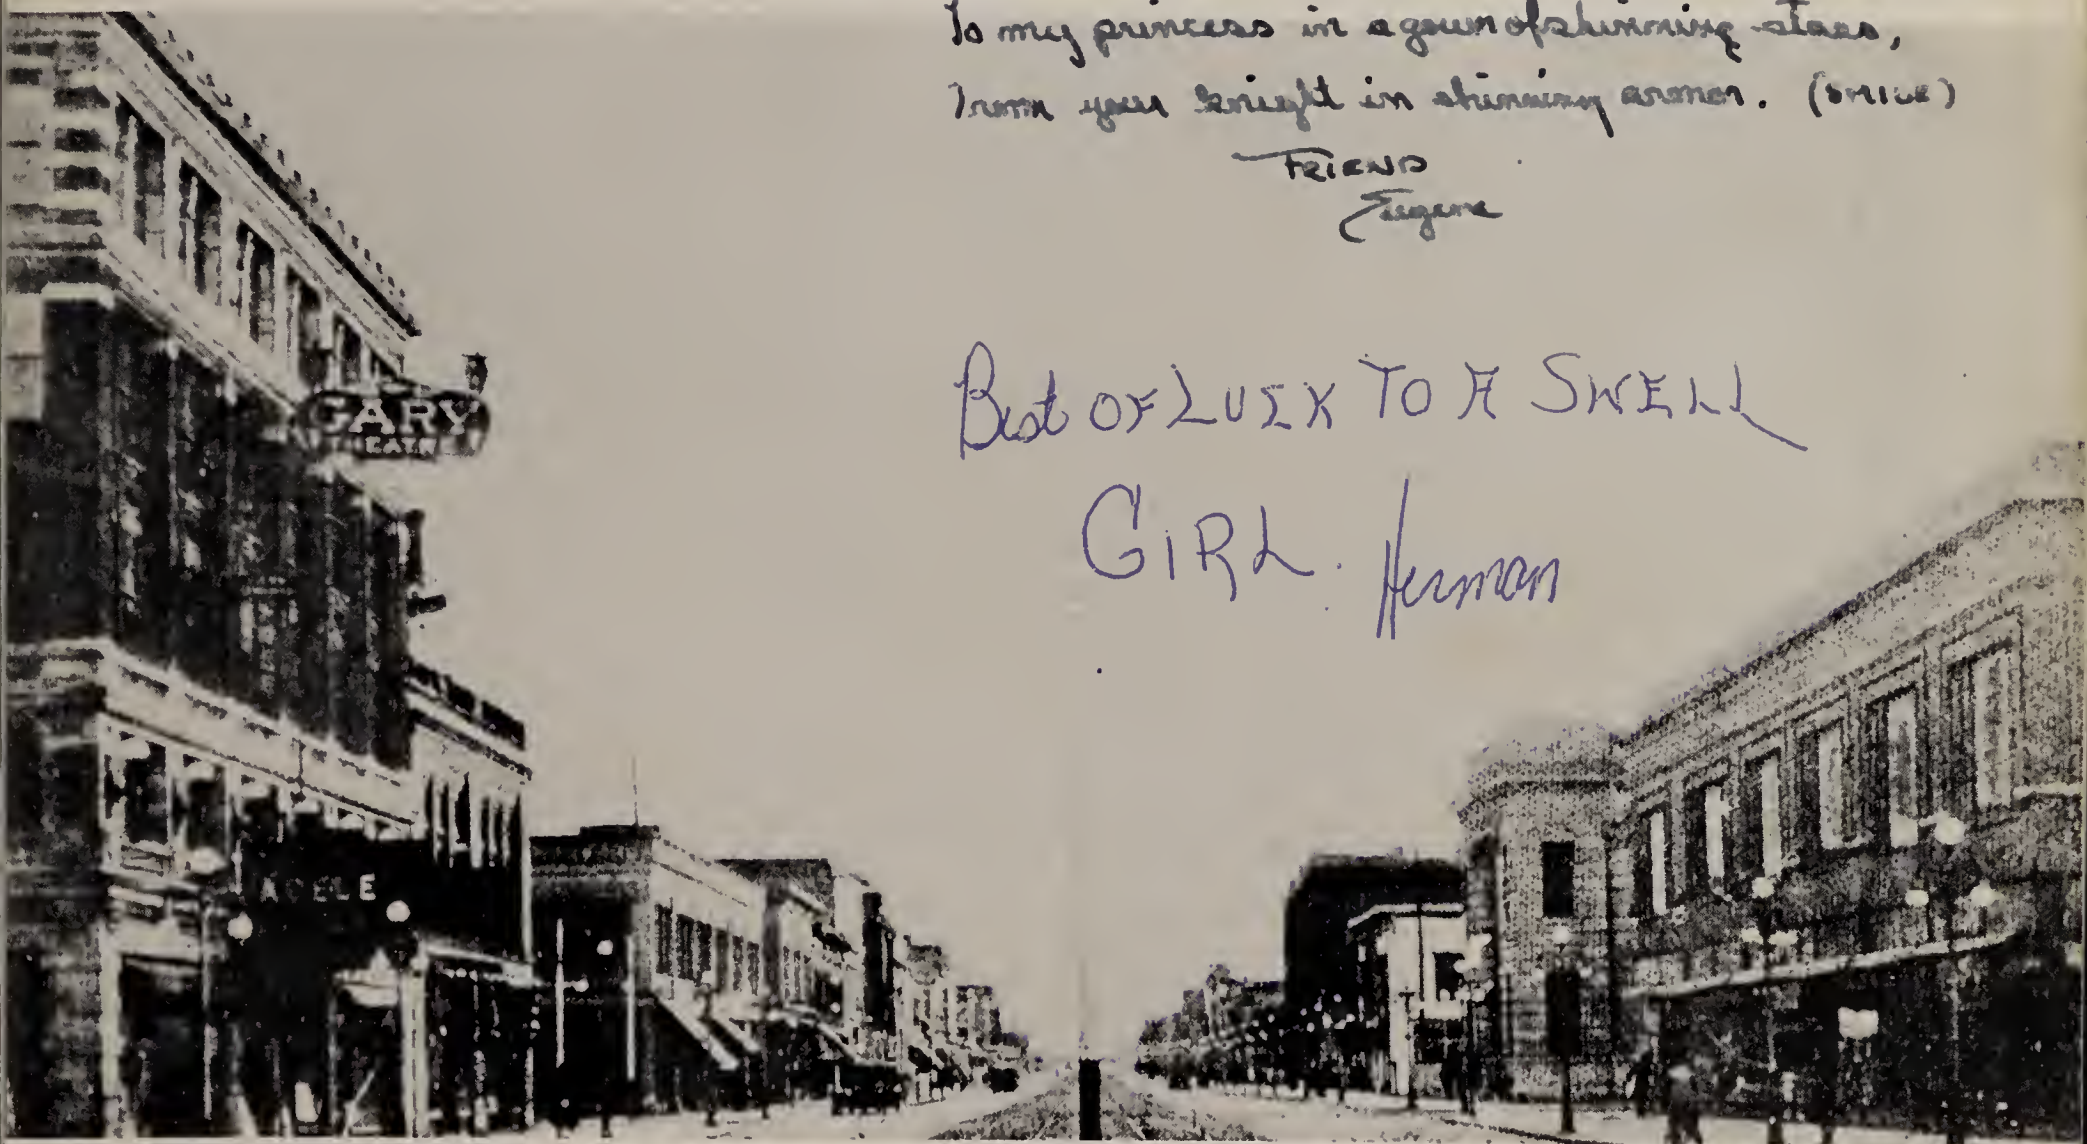 To my princess in a gown of shinning stars,
From your knight in shinning armor. (SMILE)
FRIEND
Eugene
Best OF LUCK TO A SWELL
GIRL. Herman
GARY
ADELE